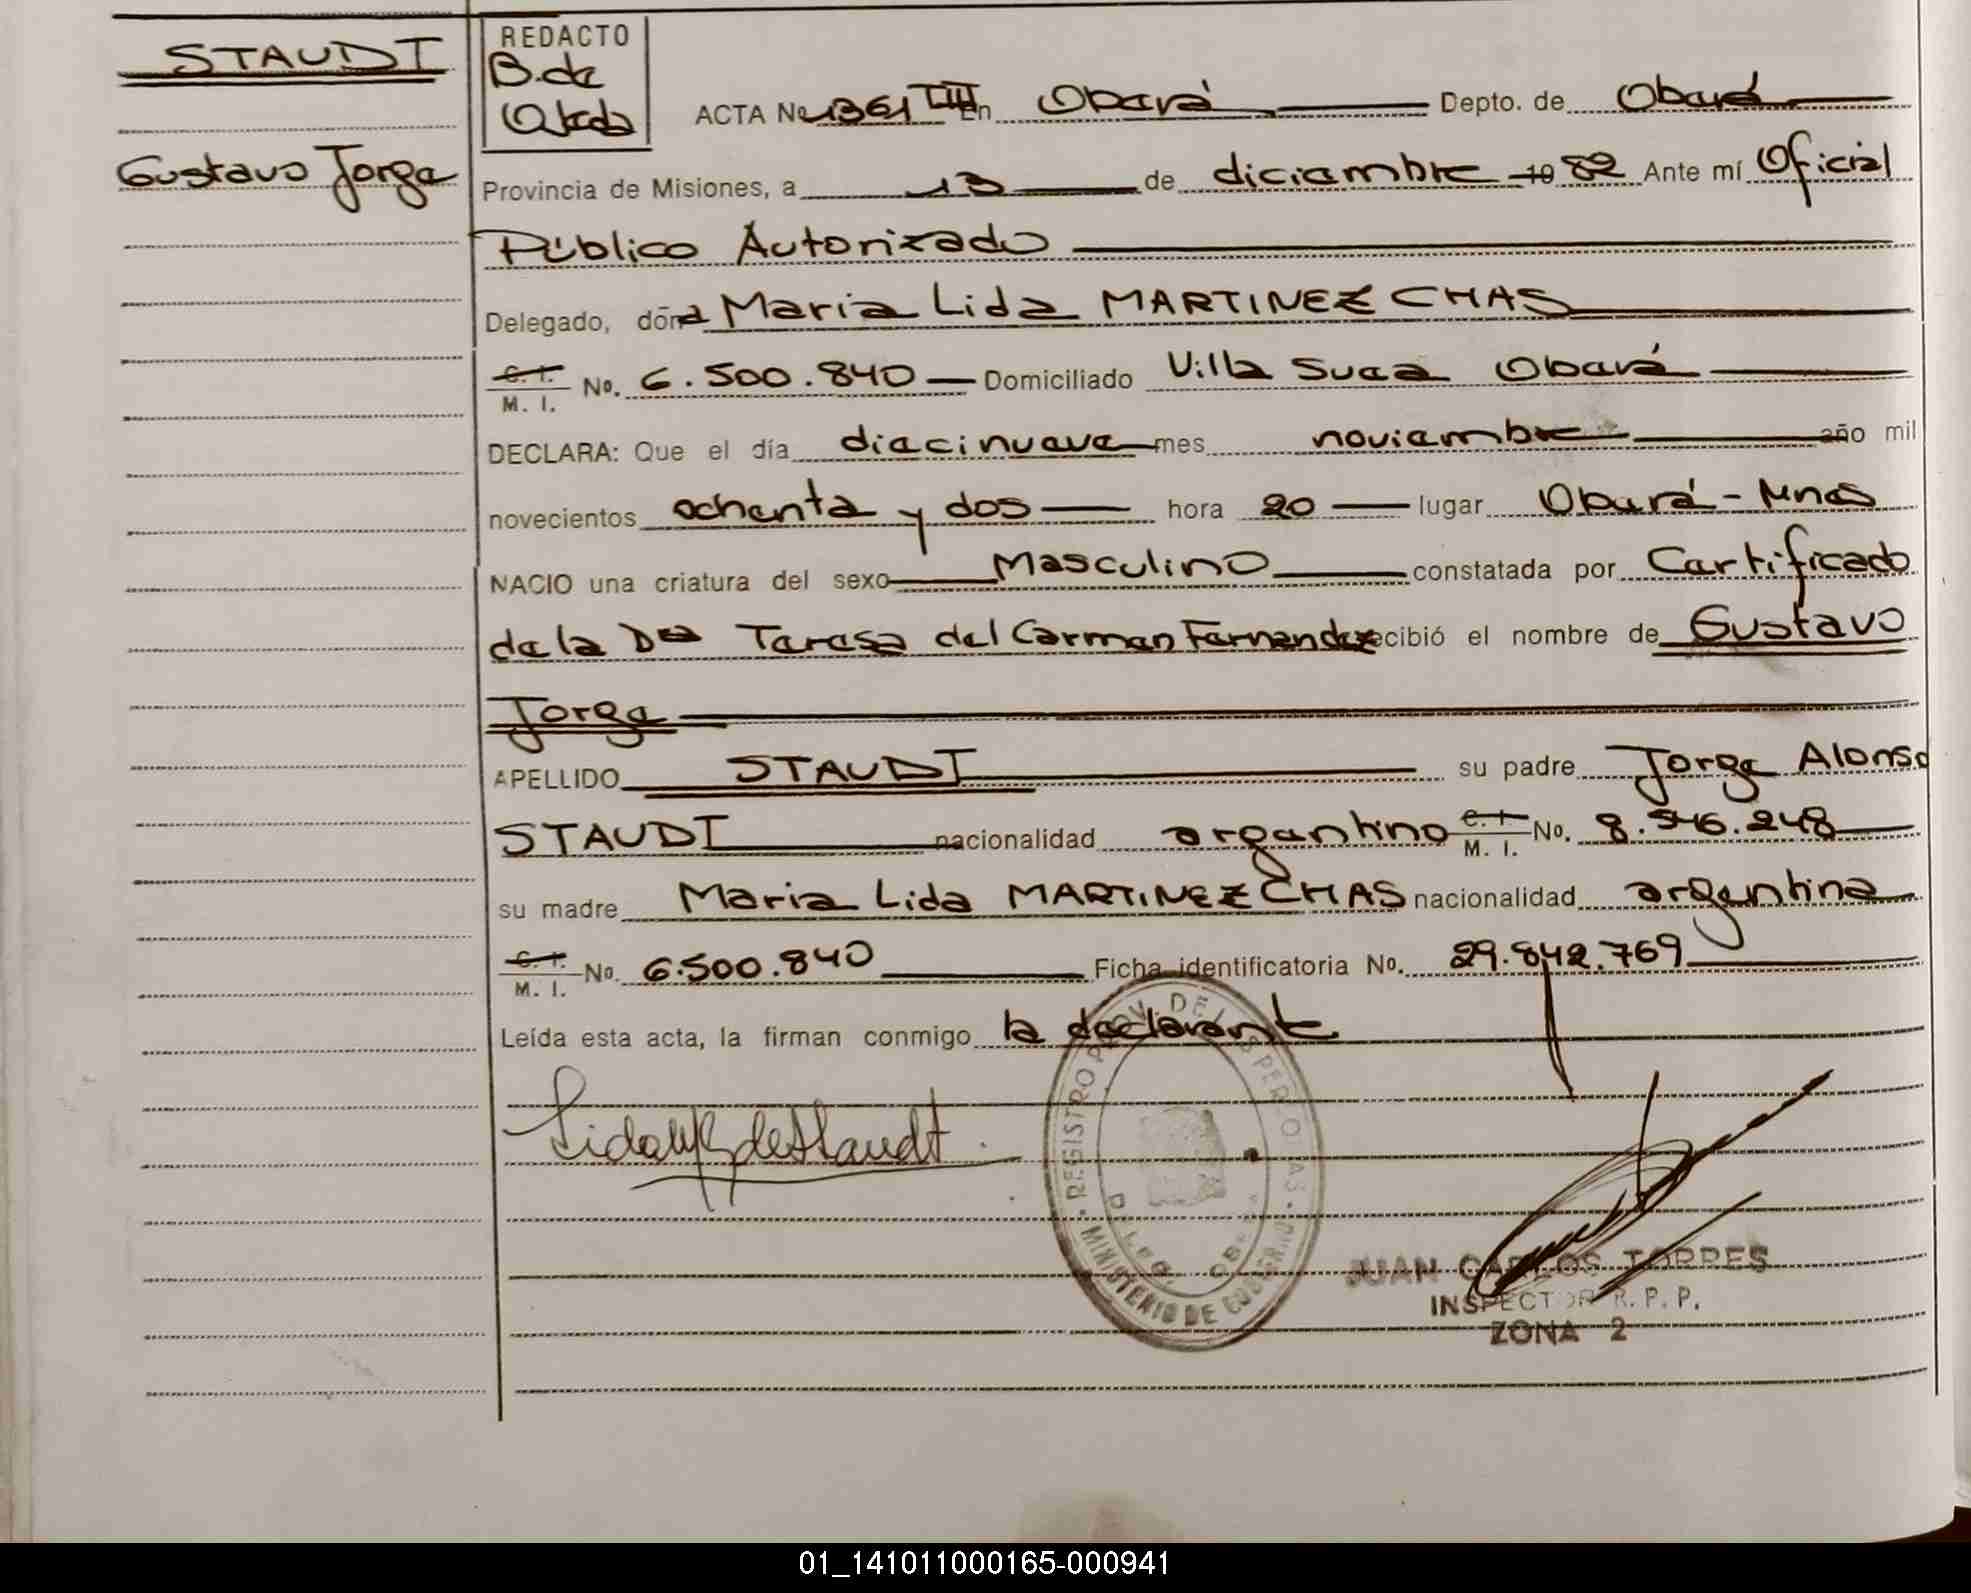 STAUDT
Gustavo Jorge
REDACTO
B. de
Ojeda
ACTA No 1361 TIII En Oberá Depto. de Oberá
Provincia de Misiones, a 13 de diciembre 19 82 Ante mí Oficial
Público Autorizado
Delegado, doña Maria Lida MARTINEZ CHAS
C. I. M. I. No. 6.500.840 Domiciliado Villa Sueca Oberá
DECLARA: Que el día diecinueve mes noviembre año mil
novecientos ochenta y dos hora 20 lugar Oberá - Mnes
NACIO una criatura del sexo Masculino constatada por Certificado
de la Dra Teresa del Carmen Fernandez recibió el nombre de Gustavo
Jorge
APELLIDO STAUDT su padre Jorge Alonso
STAUDT nacionalidad argentino C. I. M. I. No. 8.546.248
su madre Maria Lida MARTINEZ CHAS nacionalidad argentina
C. I. M. I. No. 6.500.840 Ficha identificatoria No. 29.842.769
Leída esta acta, la firman conmigo la declarante
REGISTRO PROV. DE LAS PERSONAS
MINISTERIO DE GOBIERNO
JUAN CARLOS TORRES
INSPECTOR R. P. P.
ZONA 2
01_141011000165-000941